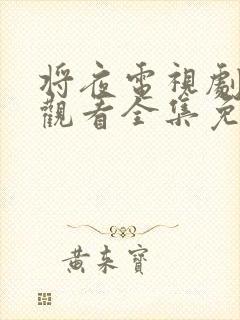 將夜電視劇
觀看全集免
黃來寶